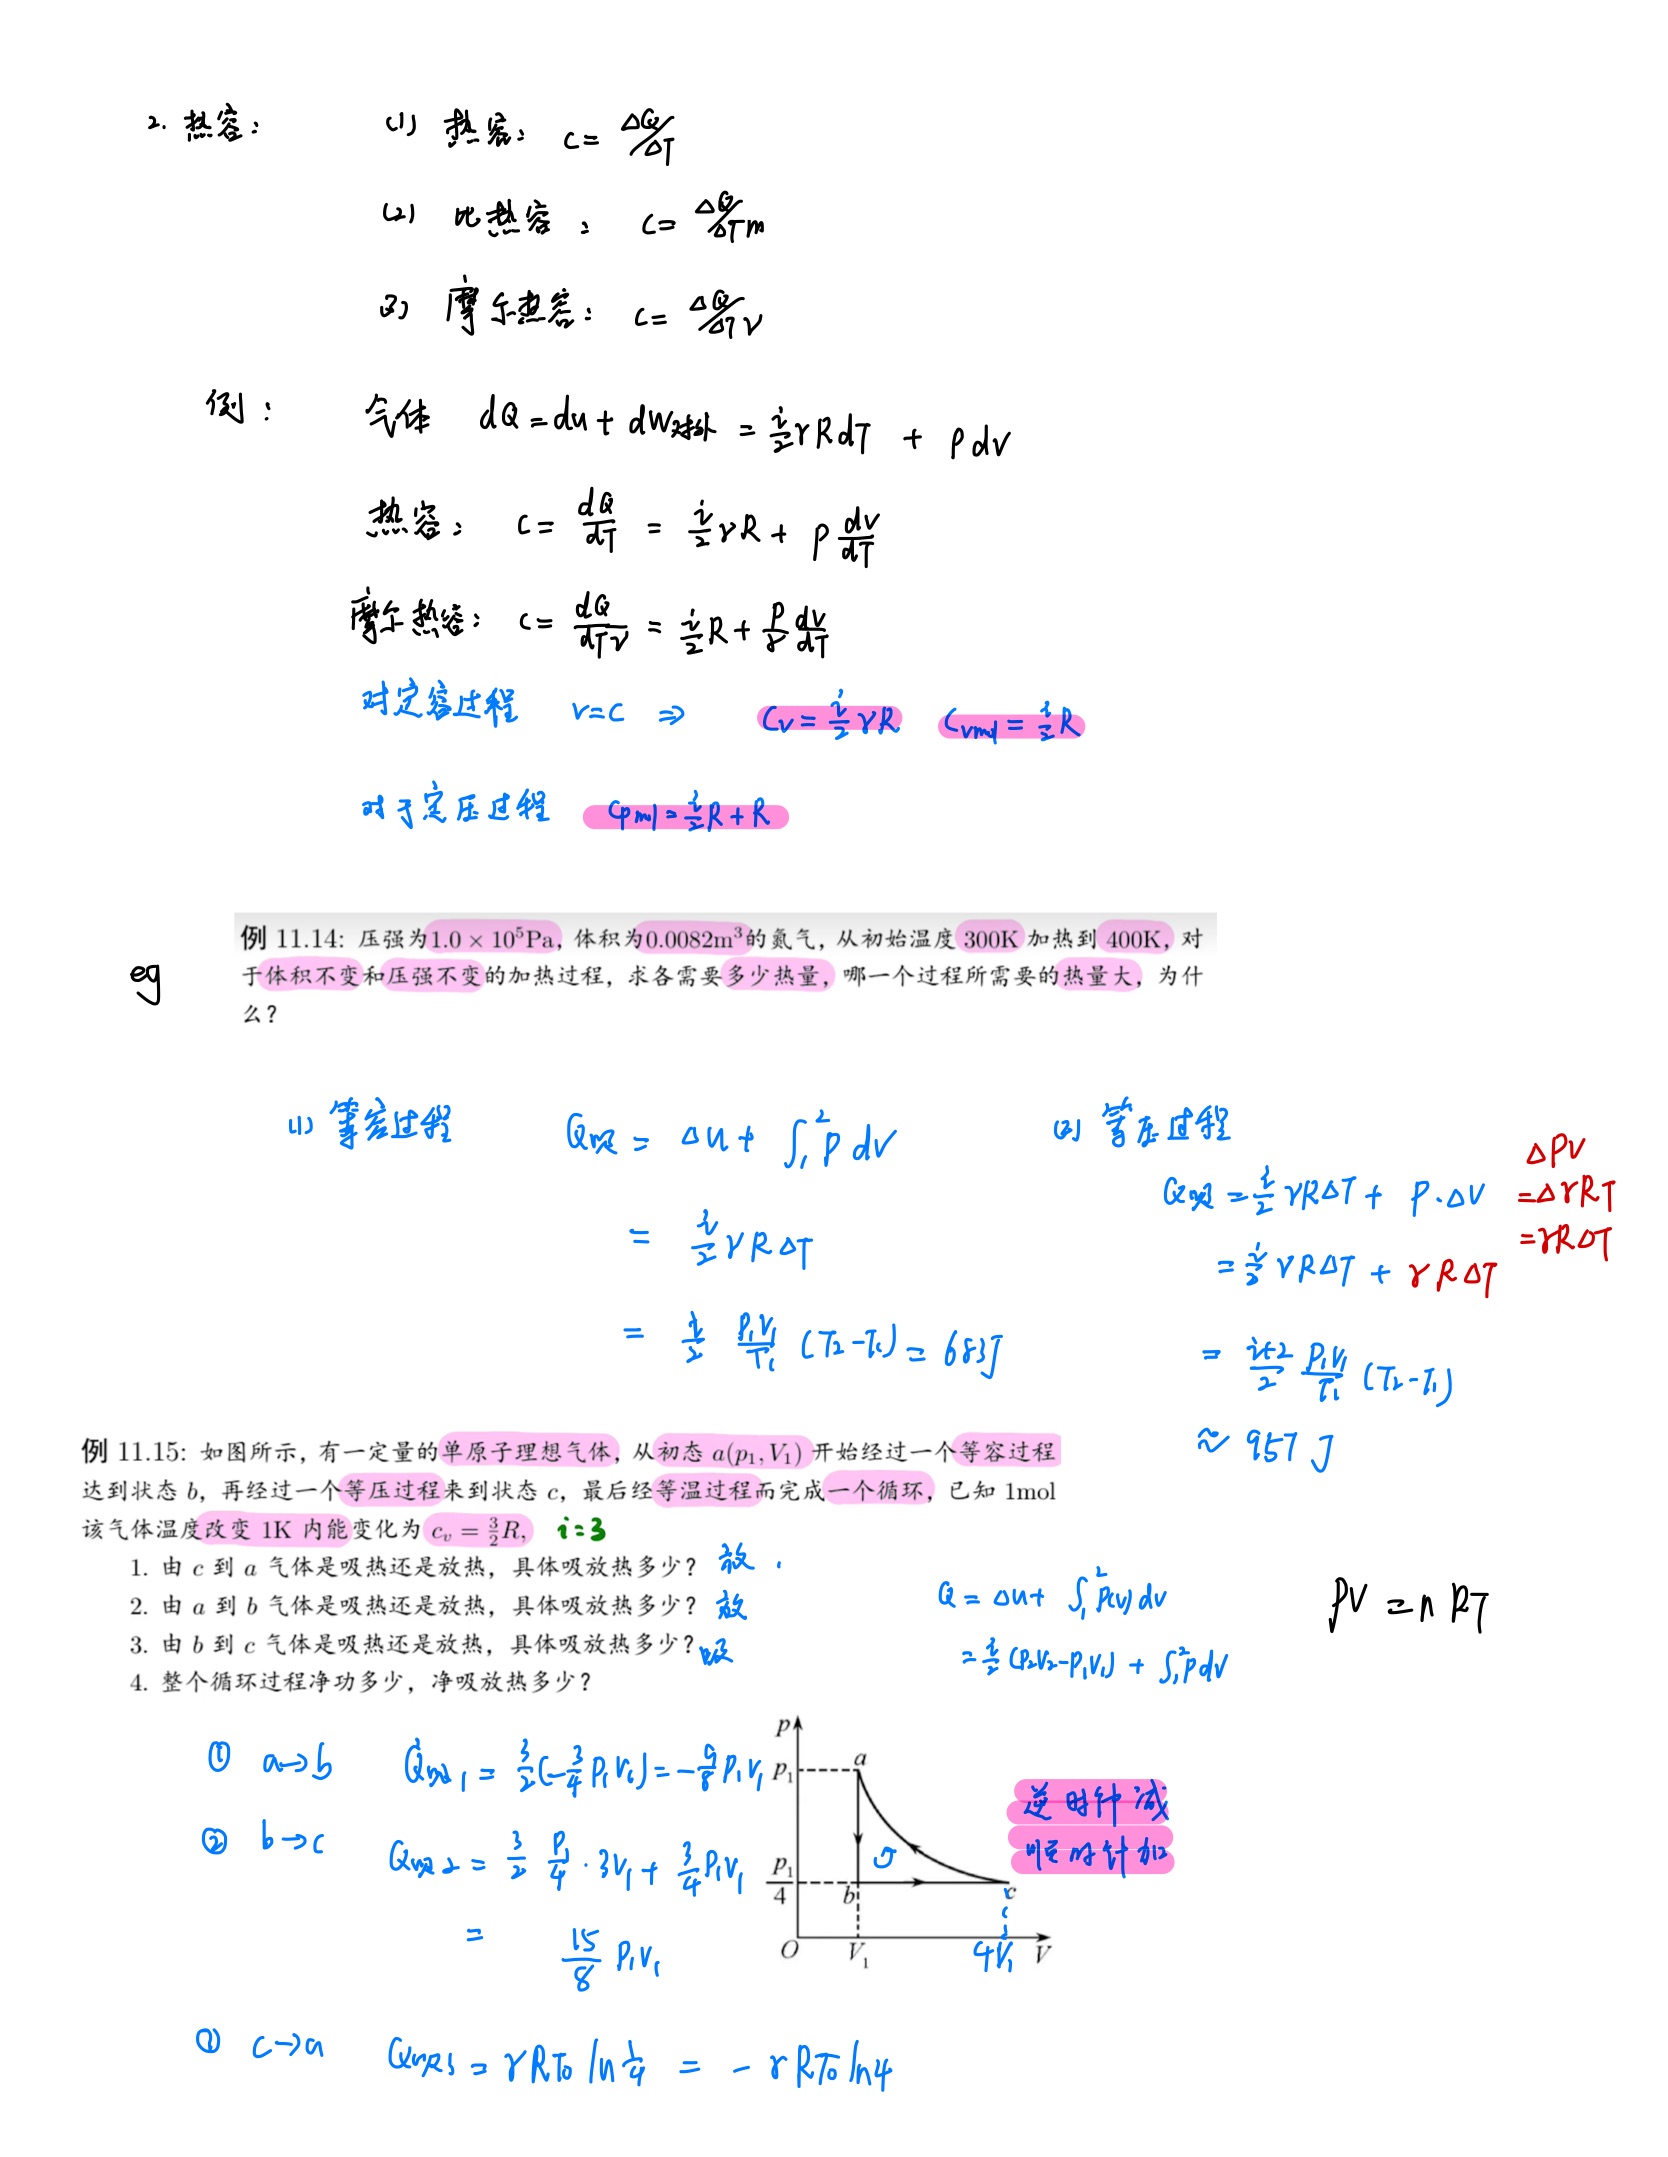 2. 热容: (1) 热容: C= ΔQ/ΔT
(2) 比热容: C= ΔQ/ΔTm
(3) 摩尔热容: C= ΔQ/ΔTν
例: 气体 dQ=du+dW对外 = i/2 γRdT + Pdv
热容: C= dQ/dT = i/2 γR + P dv/dT
摩尔热容: C= dQ/dTν = i/2 R + P/γ dv/dT
对定容过程 v=c ⇒ Cv= i/2 γR Cvmol = i/2 R
对于定压过程 Cpmol = i/2 R+R
eg
例 11.14: 压强为1.0 × 10⁵Pa, 体积为0.0082m³的氮气, 从初始温度 300K 加热到 400K, 对
于体积不变和压强不变的加热过程, 求各需要多少热量, 哪一个过程所需要的热量大, 为什
么?
(1) 等容过程 Q吸 = Δu + ∫₁² P dv
= i/2 γRΔT
= i/2 P₁V₁/T₁ (T₂-T₁) = 683J
(2) 等压过程
Q吸 = i/2 γRΔT + P·ΔV
ΔPV
=ΔγRT
=γRΔT
= i/2 γRΔT + γRΔT
= i+2/2 P₁V₁/T₁ (T₂-T₁)
≈ 957 J
例 11.15: 如图所示, 有一定量的单原子理想气体, 从初态 a(p₁, V₁) 开始经过一个等容过程
达到状态 b, 再经过一个等压过程来到状态 c, 最后经等温过程而完成一个循环, 已知 1mol
该气体温度改变 1K 内能变化为 cᵥ = 3/2 R, i=3
1. 由 c 到 a 气体是吸热还是放热, 具体吸放热多少? 放.
2. 由 a 到 b 气体是吸热还是放热, 具体吸放热多少? 放
3. 由 b 到 c 气体是吸热还是放热, 具体吸放热多少? 吸
4. 整个循环过程净功多少, 净吸放热多少?
Q = Δu+ ∫₁² P(v)dv
= i/2 (P₂V₂-P₁V₁) + ∫₁² Pdv
PV = nRT
① a→b Q吸1 = 3/2(-3/4 P₁V₁)=-9/8 P₁V₁
② b→c Q吸2 = 3/2 P₁/4 · 3V₁ + 3/4 P₁V₁
= 15/8 P₁V₁
p
p₁
a
p₁/4
b
c
O
V₁
4V₁
V
逆时针减
顺时针加
③ c→a Q吸3 = γRT₀ ln 1/4 = -γRT₀ ln4